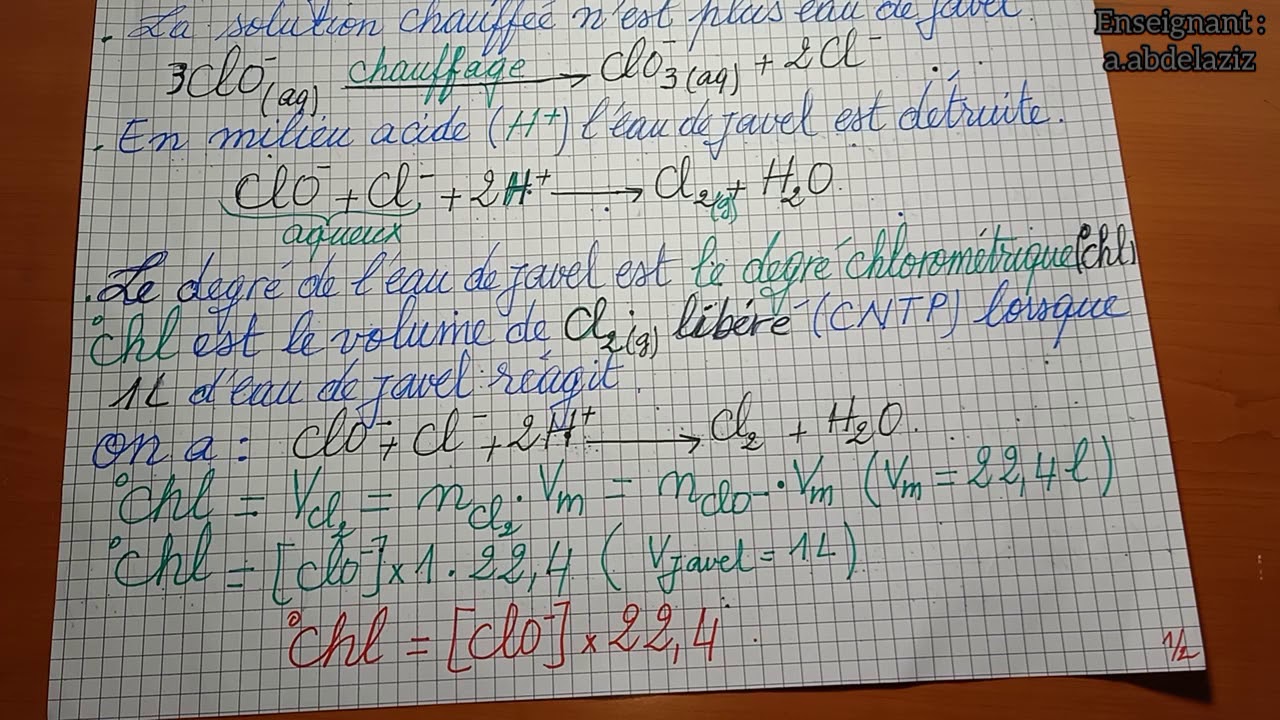 . La solution chauffée n'est plus eau de javel.
3ClO⁻(aq) chauffage → ClO₃⁻(aq) + 2Cl⁻
. En milieu acide (H⁺) l'eau de javel est détruite.
ClO⁻ + Cl⁻ + 2H⁺ → Cl₂(g) + H₂O.
aqueux
. Le degré de l'eau de javel est le degré chlorométrique (°chl)
°chl est le volume de Cl₂(g) libéré (CNTP) lorsque
1L d'eau de javel réagit.
on a : ClO⁻ + Cl⁻ + 2H⁺ → Cl₂ + H₂O.
°chl = V_Cl₂ = n_Cl₂ . Vm = n_ClO⁻ . Vm (Vm = 22,4 l)
°chl = [ClO⁻] × 1 . 22,4 ( V_javel = 1L )
°chl = [ClO⁻] × 22,4
1/2
Enseignant :
a.abdelaziz